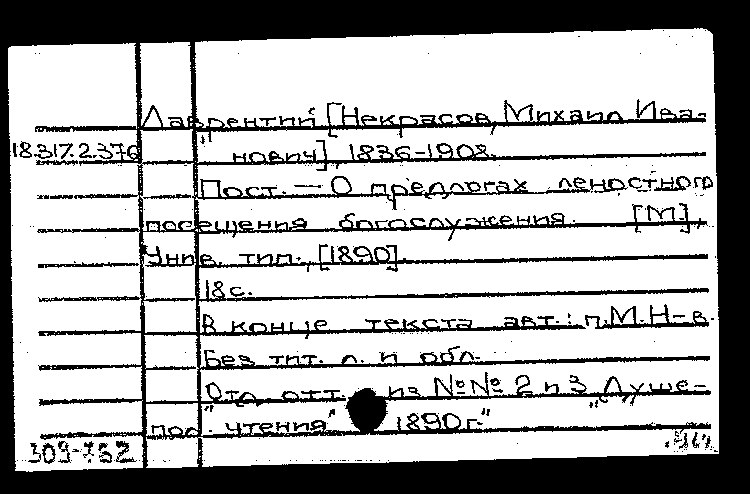 Лаврентий [Некрасов, Михаил Ива-
18.317.2.376 нович], 1836-1908.
Пост. — О предлогах леностного
посещения богослужения. [М],
Унив. тип., [1890].
18 с.
В конце текста авт.: п.М.Н-в.
Без тит. л. и обл.
"Отд. отт. из №№ 2 и 3 "Душе-
пол. чтения" 1890г."
309-752